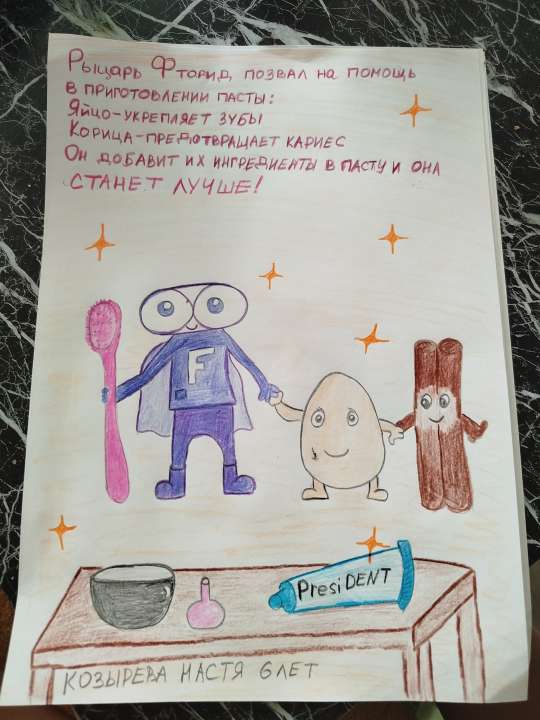 Рыцарь Фторид, позвал на помощь
в приготовлении пасты:
Яйцо-укрепляет зубы
Корица-предотвращает кариес
Он добавит их ингредиенты в пасту и она
СТАНЕТ ЛУЧШЕ!
F
PresiDENT
КОЗЫРЕВА НАСТЯ 6ЛЕТ